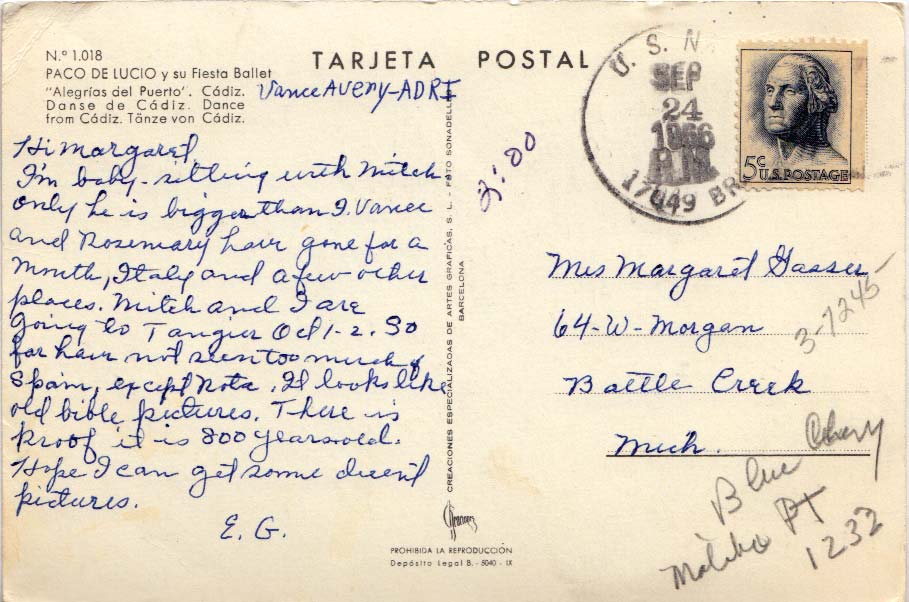 N.º 1.018
PACO DE LUCIO y su Fiesta Ballet
"Alegrías del Puerto". Cádiz.
Danse de Cádiz. Dance
from Cádiz. Tänze von Cádiz.
TARJETA POSTAL
Vance Avery-ADR1
Hi Margaret,
I'm baby-sitting with Mitch
only he is bigger than I. Vance
and Rosemary have gone for a
month, Italy and a few other
places. Mitch and I are
going to Tangier Oct 1-2. So
far have not seen too much of
Spain, except Rota. It looks like
old bible pictures. There is
proof it is 800 years old.
Hope I can get some decent
pictures.
E. G.
CREACIONES ESPECIALIZADAS DE ARTES GRAFICAS, S. L. - FOTO SONADELLAS
BARCELONA
PROHIBIDA LA REPRODUCCIÓN
Depósito Legal B. - 5040 - IX
2:00
U. S. N.
SEP
24
1966
17049 BR
5c
U.S. POSTAGE
Mrs Margaret Gasser
64-W-Morgan
Battle Creek
Mich.
3-7245
Blue
Malibo PT
1232